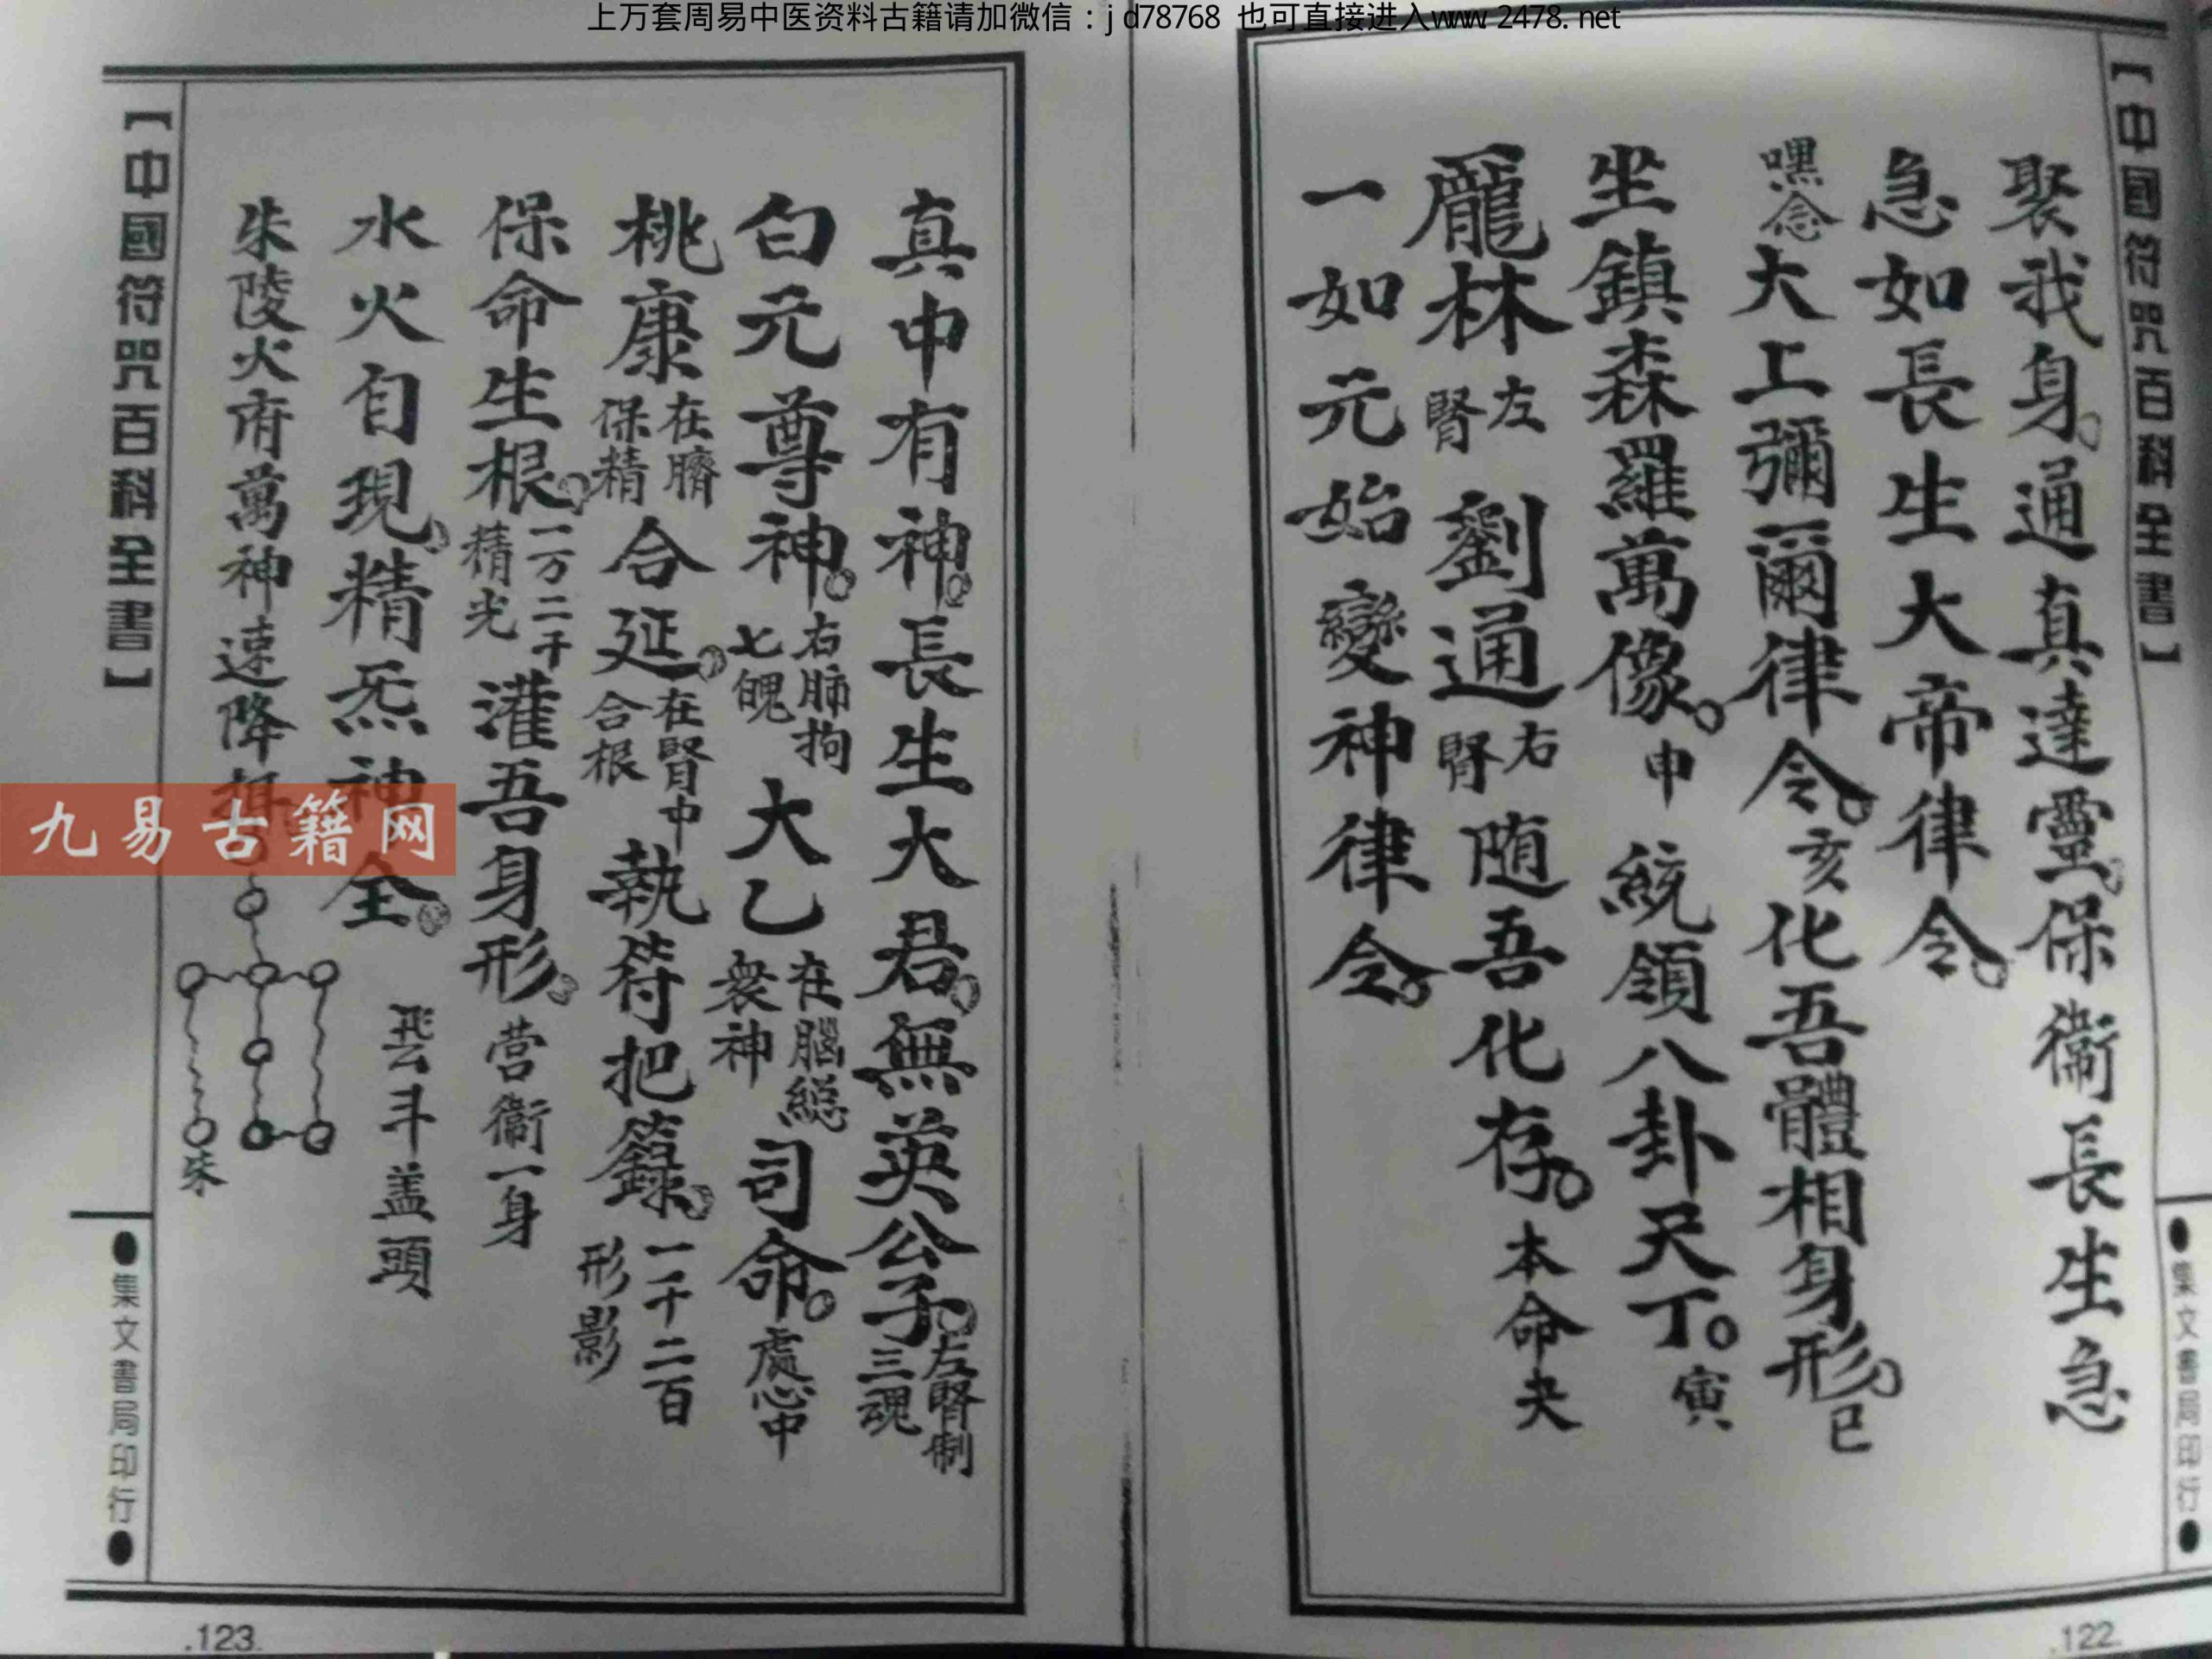 上万套周易中医资料古籍请加微信：jd78768 也可直接进入www.2478.net
【中國符咒百科全書】
聚我身。通真達靈。保衞長生急
急如長生大帝律令。
嘿念大上彌爾律令。亥化吾體相身形。巳
坐鎮森羅萬像。申 統領八卦尺丁。寅
龐林左腎 劉通右腎 随吾化存。本命夫
一如元始變神律令。
●集文書局印行●
.122.
真中有神。長生大君。無英公子。左腎制三魂
白元尊神。右肺拘七魄 大乙在腦総衆神 司命。處心中
桃康在臍保精 合延。在腎中合根 執符把籙。一千二百形影
保命生根。一万二千精光 灌吾身形。营衞一身
水火自現。精炁神全。雲斗盖頭
朱陵火府萬神速降
朱
【中國符咒百科全書】
●集文書局印行●
.123.
九易古籍网